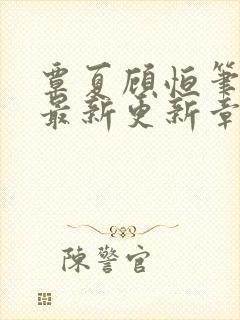 覃夏顾恒笔
最新更新章
陈警官